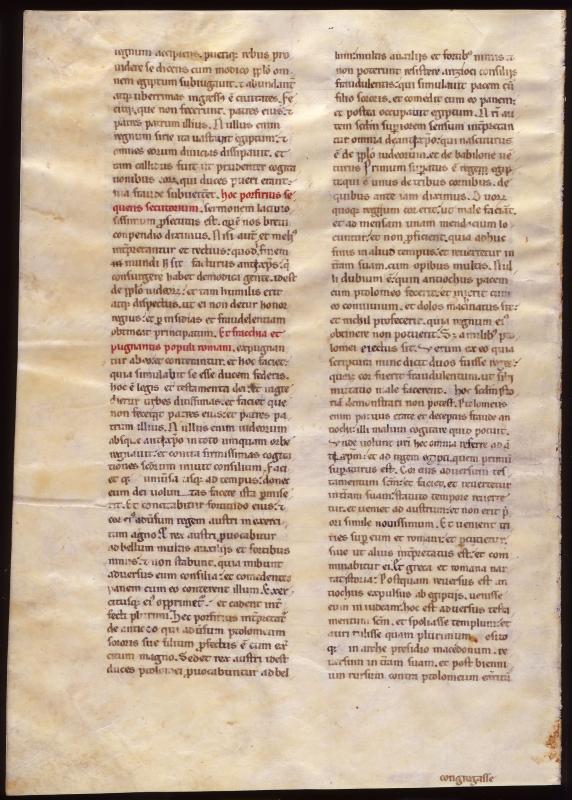 regnum accipiens, puerisque rebus pro
videre se dicens cum modico pplo om
nem egiptum subiugavit. et
uberrimas ingressus est civitates. Fe
citque que non fecerunt. patres eius. et
patres patrum illius. Nullus enim
regnum sirie ita vastavit egiptum. et
omnes eorum divicias dissipavit. et
tam callidus fuit ut prudentes cogita
tiones eorum qui duces pueri erant
sua fraude subverteret. hec porfirius se
quens secutorium. sermonem laciuo
sissimum prosecutus est. que nos brevi
conpendio diximus. Nostri autem et melius
interpretantur et rectius. quod in finem
mundi hec sit facturus antichristus. qui
consurgere habet de modica gente. idest
de pplo iudeorum. et tam humilis erit
atque dispectus. ut ei non detur honor
regius. et per insidias et fraudelentiam
obtineat principatum. Et bracchia
pugnantis populi romani. expugnan
tur ab eo et conterantur. et hoc faciet
quia simulabit se esse ducem federis.
hoc est legis et testamenta dei. et ingre
dietur urbes ditissimas. et faciet que
non fecerunt patres eius. et patres pa
trum illius. Nullus enim iudeorum
absque antichristo in toto umquam orbe
regnavit. et contra firmissimas cogita
tiones sctorum iniute consilium. faci
et que universa usque ad tempus. donec
eum dei voluntas facere ista permise
rit. Et concitabitur fortitudo eius. et
cor eius adversum regem austri in exerci
tum agno. Et rex austri provocabitur
ad bellum multis auxiliis et fortibus
nimis. et non stabunt. quia inibunt
adversus eum consilia. et comedentes
panem cum eo conterent illum. Exer
citusque eius opprimetur. et cadent inter
fecti plurimi. Hec porfirius interpretatur
de antioco qui adversum ptolomeum
sororis sue filium profectus est cum exer
citum magno. Sed et rex austri idest
duces ptolomei provocabuntur ad bel
lum. multis auxiliis et fortibus nimis. et
non poterunt resistere antiochi consiliis
fraudulentis. qui simulavit pacem cum
filio sororis. et comedit cum eo panem.
et postea occupavit egiptum. Nostri au
tem secundum superiorem sensum interpretan
tur omnia de antichristo. qui nasciturus
est de pplo iudeorum. et de babilone ven
turus. Primum superaturus est regem egip
ti. qui est unus de tribus cornibus. de
quibus ante iam diximus. Duorum
quoque regum cor erit. ut male faciant.
et ad mensam unam mendacium lo
cuntur. et non proficient. quia adhuc
finis in aliud tempus. et revertetur in
terram suam. cum opibus multis. Nul
li dubium est. quin antiochus pacem
cum ptolomeo fecerit. et inierit cum
eo convivium. et dolos machinatus sit.
et nichil profecerit. quia regnum eius
obtinere non potuerit. Sed a militibus pto
lomei eiectus sit. Verum ex eo quia
scriptura nunc dicit duos fuisse reges.
quorum cor fuerit fraudulentum. ut sibi
mutuo male facerent. hoc secundum
demonstrari non potest. Ptolomeus
enim parvus etate et deceptus fraude an
tiochi. illi malum cogitare quid potuit.
Unde volunt nostri hec omnia referre ad an
tichristum. et ad regem egipti. quem primum
superaturus est. Cor eius adversum tes
tamentum sctum. et faciet. et revertetur
in terram suam. statuto tempore reverte
tur. et veniet ad austrum. et non erit pri
ori simile novissimum. Et venient tri
eres super eum et romani. et percucietur.
sive ut alius interpretatus est. et com
minabitur ei. Et greca et romana nar
rat istoria. Postquam reversus est an
tiochus expulsus ab egiptiis. venisse
eum in iudeam. hoc est adversus testa
mentum sctum. et spoliasse templum. et
auri tulisse quam plurimum. osito
que in arche presidio macedonum. re
versum in terram suam. et post bienni
um rursum contra ptolomeum exercitum
congregasse